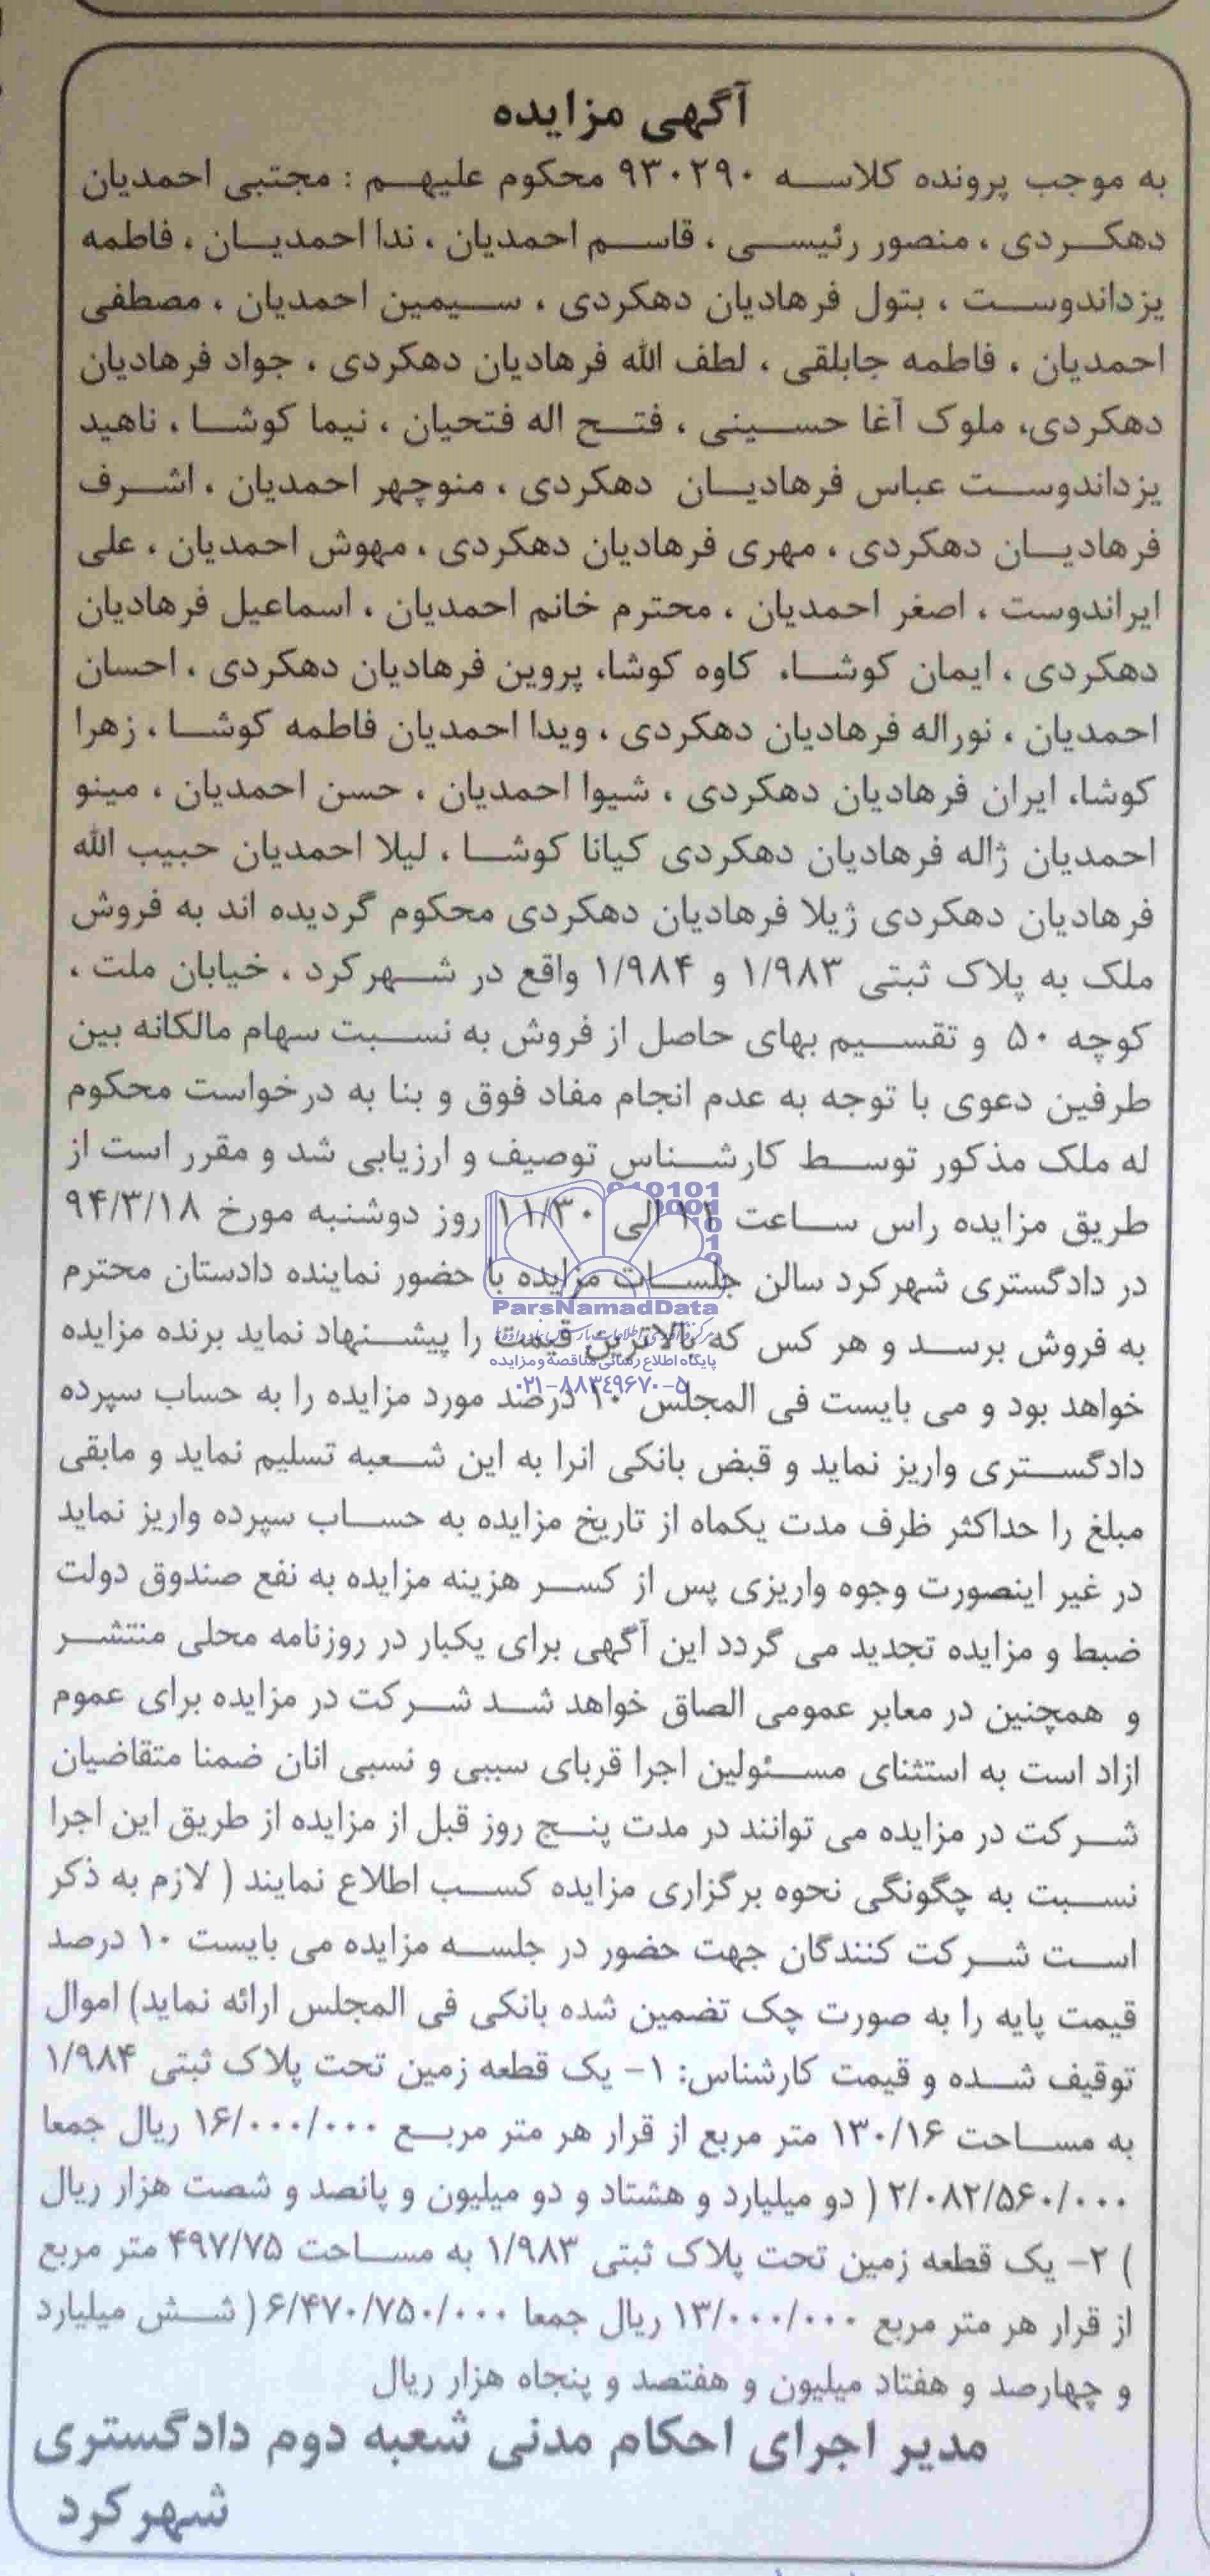 آگهی مزایده
به موجب پرونده کلاسه ۹۳۰۲۹۰ محکوم علیهم : مجتبی احمدیان
دهکردی ، منصور رئیسی ، قاسم احمدیان ، ندا احمدیان ، فاطمه
یزداندوست ، بتول فرهادیان دهکردی ، سیمین احمدیان ، مصطفی
احمدیان ، فاطمه جابلقی ، لطف الله فرهادیان دهکردی ، جواد فرهادیان
دهکردی، ملوک آغا حسینی ، فتح اله فتحیان ، نیما کوشا ، ناهید
یزداندوست عباس فرهادیان دهکردی ، منوچهر احمدیان ، اشرف
فرهادیان دهکردی ، مهری فرهادیان دهکردی ، مهوش احمدیان ، علی
ایراندوست ، اصغر احمدیان ، محترم خانم احمدیان ، اسماعیل فرهادیان
دهکردی ، ایمان کوشا، کاوه کوشا، پروین فرهادیان دهکردی ، احسان
احمدیان ، نوراله فرهادیان دهکردی ، ویدا احمدیان فاطمه کوشا ، زهرا
کوشا، ایران فرهادیان دهکردی ، شیوا احمدیان ، حسن احمدیان ، مینو
احمدیان ژاله فرهادیان دهکردی کیانا کوشا ، لیلا احمدیان حبیب الله
فرهادیان دهکردی ژیلا فرهادیان دهکردی محکوم گردیده اند به فروش
ملک به پلاک ثبتی ۱/۹۸۳ و ۱/۹۸۴ واقع در شهرکرد ، خیابان ملت ،
کوچه ۵۰ و تقسیم بهای حاصل از فروش به نسبت سهام مالکانه بین
طرفین دعوی با توجه به عدم انجام مفاد فوق و بنا به درخواست محکوم
له ملک مذکور توسط کارشناس توصیف و ارزیابی شد و مقرر است از
طریق مزایده راس ساعت ۱۱ الی ۱۱/۳۰ روز دوشنبه مورخ ۹۴/۳/۱۸
در دادگستری شهرکرد سالن جلسات مزایده با حضور نماینده دادستان محترم
ParsNamadData
به فروش برسد و هر کس که بالاترین قیمت را پیشنهاد نماید برنده مزایده
پایگاه اطلاع رسانی مناقصه و مزایده
۰۲۱-۸۸۳۴۹۶۷۰-۵
خواهد بود و می بایست فی المجلس ۱۰ درصد مورد مزایده را به حساب سپرده
دادگستری واریز نماید و قبض بانکی انرا به این شعبه تسلیم نماید و مابقی
مبلغ را حداکثر ظرف مدت یکماه از تاریخ مزایده به حساب سپرده واریز نماید
در غیر اینصورت وجوه واریزی پس از کسر هزینه مزایده به نفع صندوق دولت
ضبط و مزایده تجدید می گردد این آگهی برای یکبار در روزنامه محلی منتشر
و همچنین در معابر عمومی الصاق خواهد شد شرکت در مزایده برای عموم
ازاد است به استثنای مسئولین اجرا قربای سببی و نسبی انان ضمنا متقاضیان
شرکت در مزایده می توانند در مدت پنج روز قبل از مزایده از طریق این اجرا
نسبت به چگونگی نحوه برگزاری مزایده کسب اطلاع نمایند ( لازم به ذکر
است شرکت کنندگان جهت حضور در جلسه مزایده می بایست ۱۰ درصد
قیمت پایه را به صورت چک تضمین شده بانکی فی المجلس ارائه نماید) اموال
توقیف شده و قیمت کارشناس: ۱- یک قطعه زمین تحت پلاک ثبتی ۱/۹۸۴
به مساحت ۱۳۰/۱۶ متر مربع از قرار هر متر مربع ۱۶/۰۰۰/۰۰۰ ریال جمعا
۲/۰۸۲/۵۶۰/۰۰۰ ( دو میلیارد و هشتاد و دو میلیون و پانصد و شصت هزار ریال
) ۲- یک قطعه زمین تحت پلاک ثبتی ۱/۹۸۳ به مساحت ۴۹۷/۷۵ متر مربع
از قرار هر متر مربع ۱۳/۰۰۰/۰۰۰ ریال جمعا ۶/۴۷۰/۷۵۰/۰۰۰ ( شش میلیارد
و چهارصد و هفتاد میلیون و هفتصد و پنجاه هزار ریال
مدیر اجرای احکام مدنی شعبه دوم دادگستری
شهرکرد